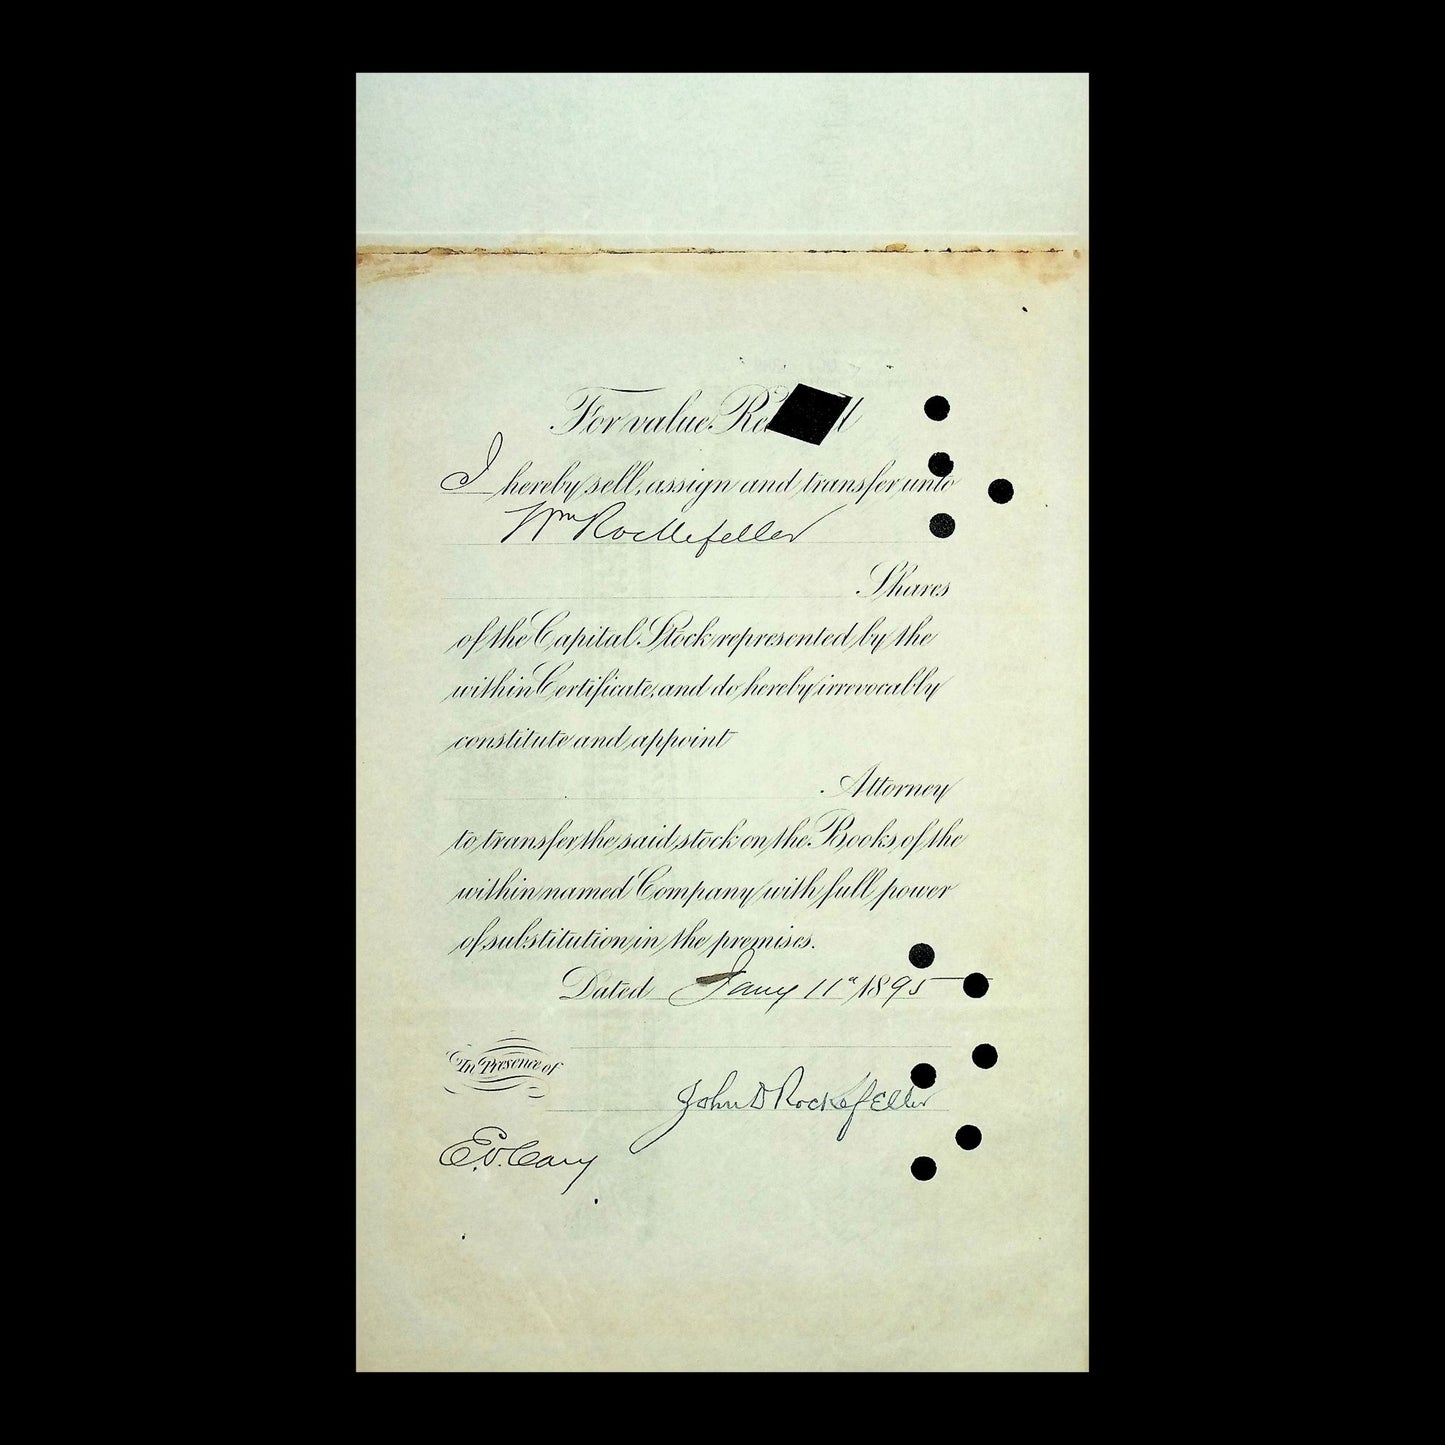 For value Re
I hereby sell, assign and transfer unto
Wm Rockefeller
Shares
of the Capital Stock represented by the
within Certificate, and do hereby irrevocably
constitute and appoint
Attorney
to transfer the said stock on the Books of the
within named Company with full power
of substitution in the premises.
Dated Jany 11" 1895
In Presence of
John D Rockefeller
E.V. Cary